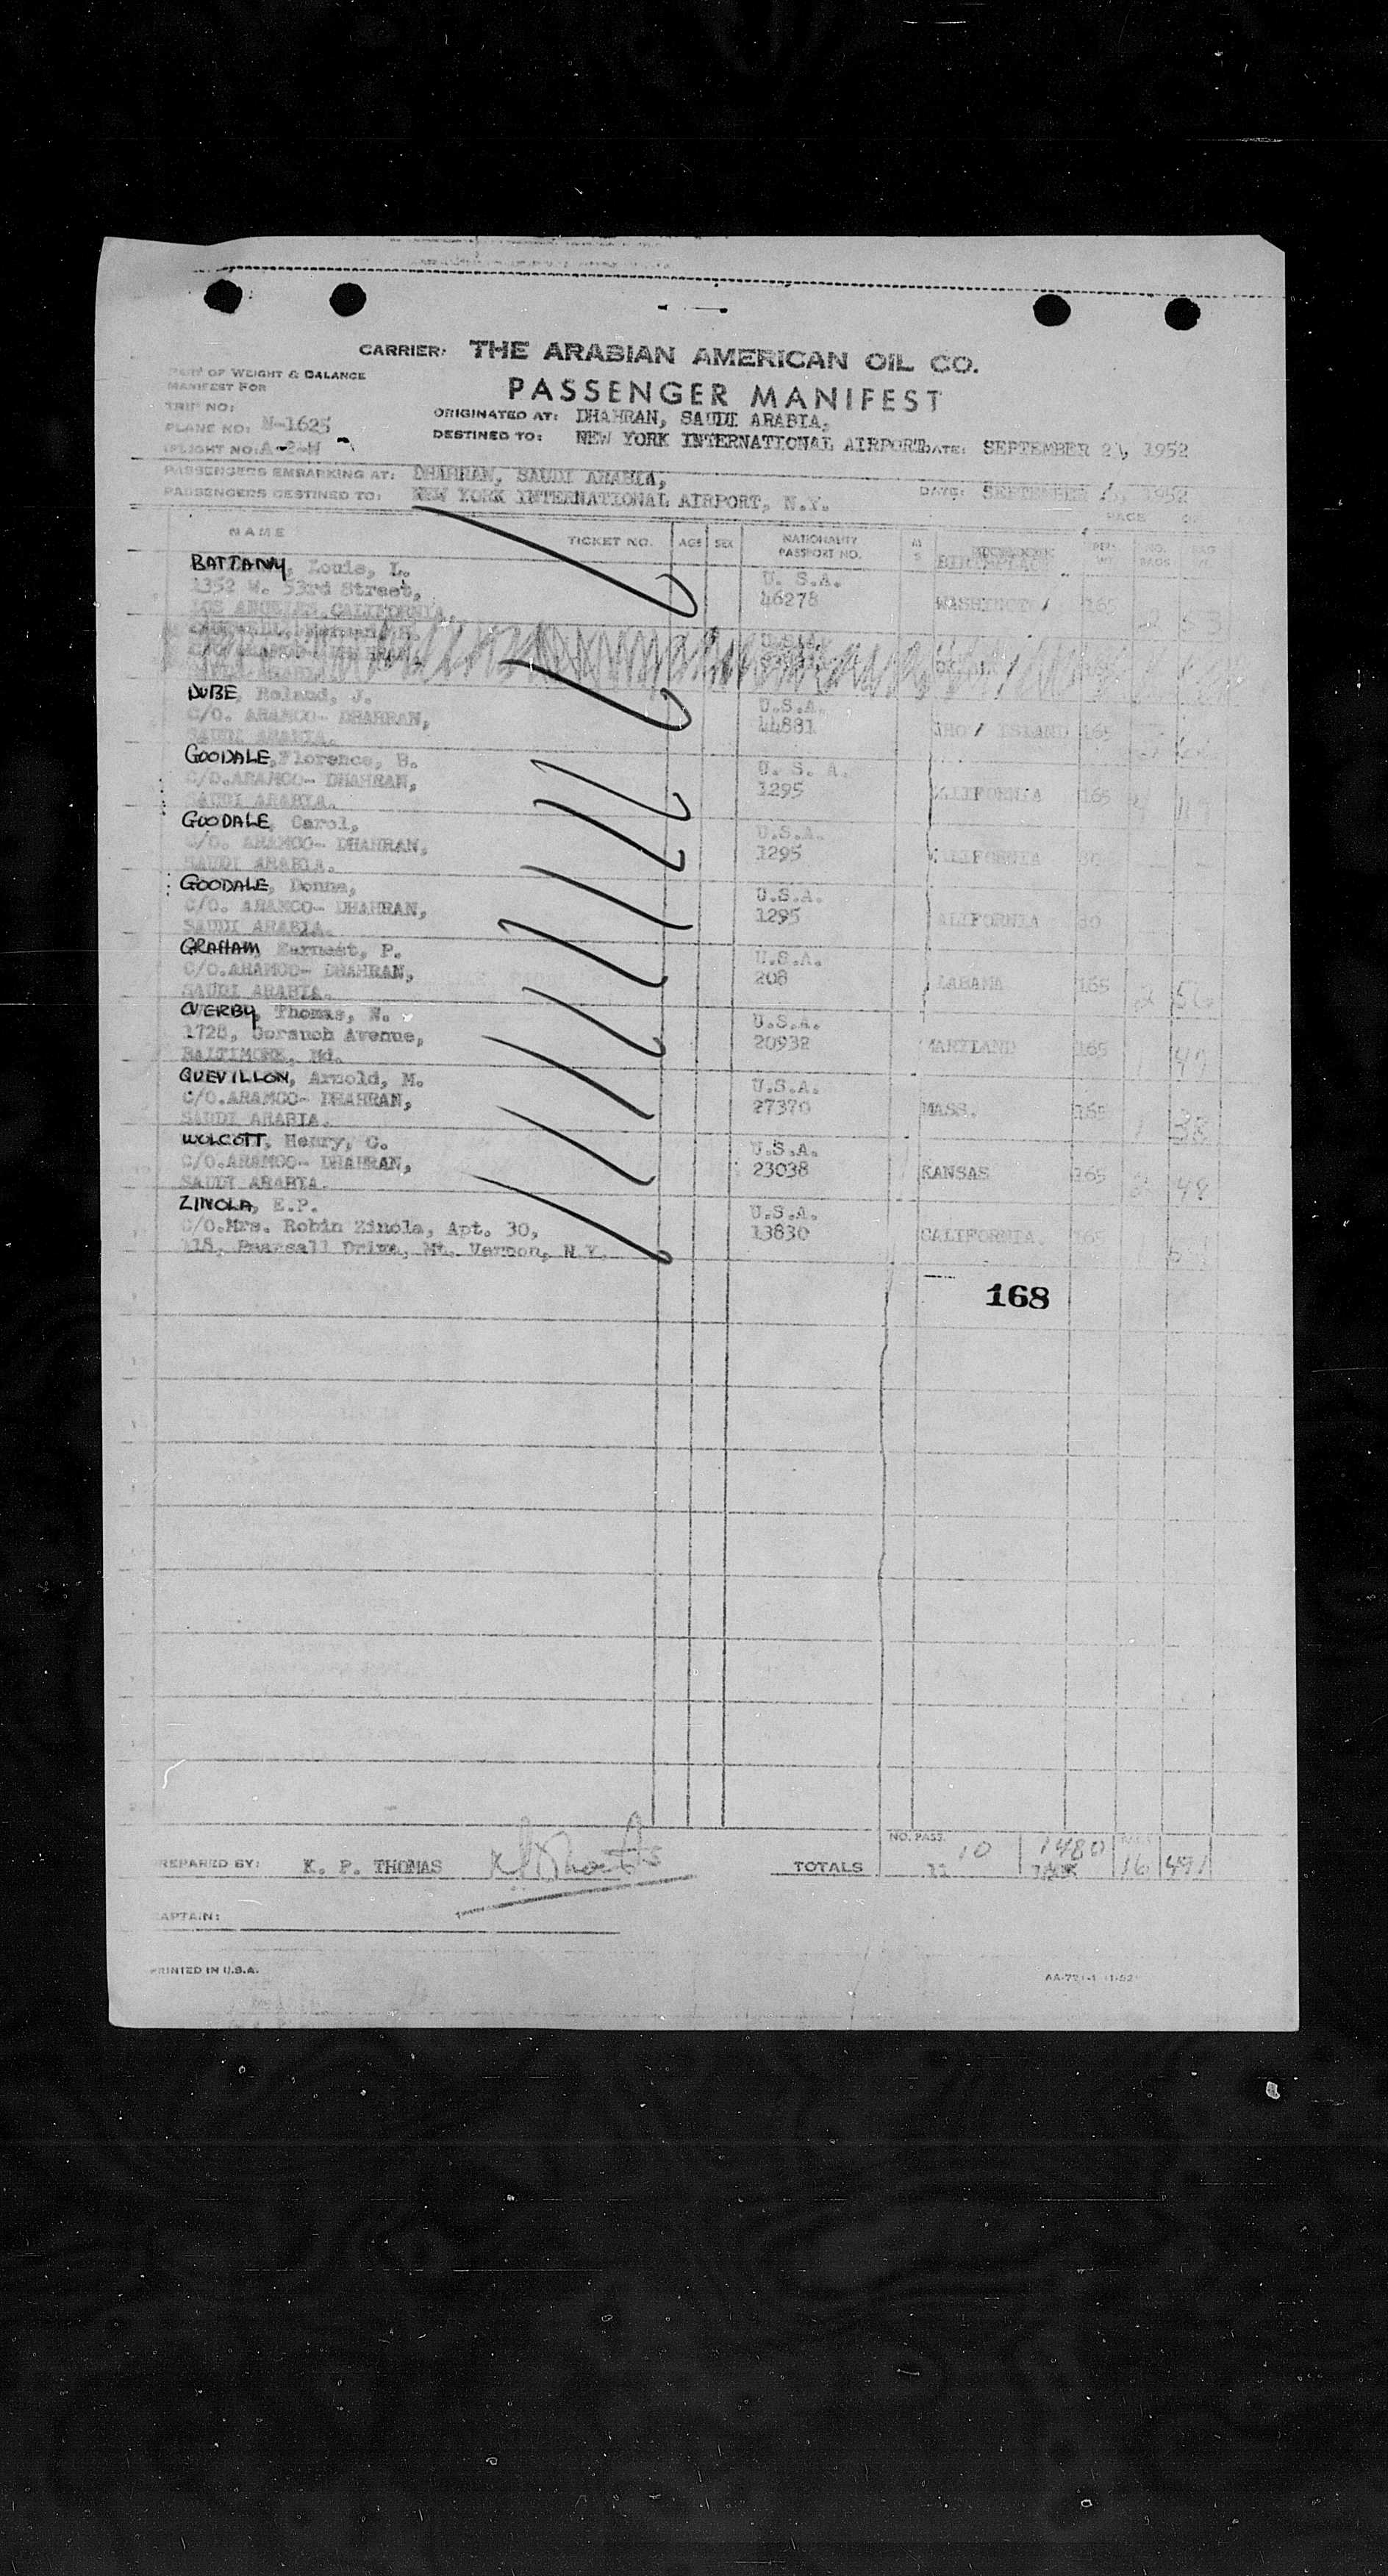 CARRIER: THE ARABIAN AMERICAN OIL CO.
PART OF WEIGHT & BALANCE
MANIFEST FOR
PASSENGER MANIFEST
TRIP NO:
ORIGINATED AT: DHAHRAN, SAUDI ARABIA,
PLANE NO: N-1625
DESTINED TO: NEW YORK INTERNATIONAL AIRPORT DATE: SEPTEMBER 21, 1952
FLIGHT NO: A-2-H
PASSENGERS EMBARKING AT: DHAHRAN, SAUDI ARABIA,
PASSENGERS DESTINED TO: NEW YORK INTERNATIONAL AIRPORT, N.Y. DATE: SEPTEMBER 1952
PAGE OF
NAME TICKET NO. AGE SEX NATIONALITY PASSPORT NO. M S BIRTHPLACE NO. BAGS
BATTANY, Louis, L. U. S.A.
1352 W. 53rd Street, 46278 WASHINGT 165 53
LOS ANGELES, CALIFORNIA,
DUBE, Roland, J. U.S.A.
C/O. ARAMCO- DHAHRAN, 44881 RHO ISLAND 165
SAUDI ARABIA.
GOODALE, Florence, B. U. S. A.
C/O.ARAMCO- DHAHRAN, 1295 CALIFORNIA 165
SAUDI ARABIA.
GOODALE, Carol, U.S.A.
C/O. ARAMCO- DHAHRAN, 1295 CALIFORNIA 30
SAUDI ARABIA.
GOODALE, Donna, U.S.A.
C/O. ARAMCO- DHAHRAN, 1295 CALIFORNIA 30
SAUDI ARABIA.
GRAHAM, Earnest, P. U.S.A.
C/O.ARAMCO- DHAHRAN, 208 ALABAMA 165 2 56
SAUDI ARABIA.
OVERBY, Thomas, N. U.S.A.
1728, Gorsuch Avenue, 20932 MARYLAND 165 1
BALTIMORE, Md.
QUEVILLON, Arnold, M. U.S.A.
C/O.ARAMCO- DHAHRAN, 27370 MASS. 165 1 38
SAUDI ARABIA.
WOLCOTT, Henry, C. U.S.A.
C/O.ARAMCO- DHAHRAN, 23038 KANSAS 165 2 48
SAUDI ARABIA.
ZINOLA, E.P. U.S.A.
C/O.Mrs. Robin Zinola, Apt. 30, 13830 CALIFORNIA. 165
118, Pearsall Drive, Mt. Vernon, N.Y.
168
NO. PASS. 10 1480
PREPARED BY: K. P. THOMAS TOTALS 11 16 491
CAPTAIN:
PRINTED IN U.S.A.